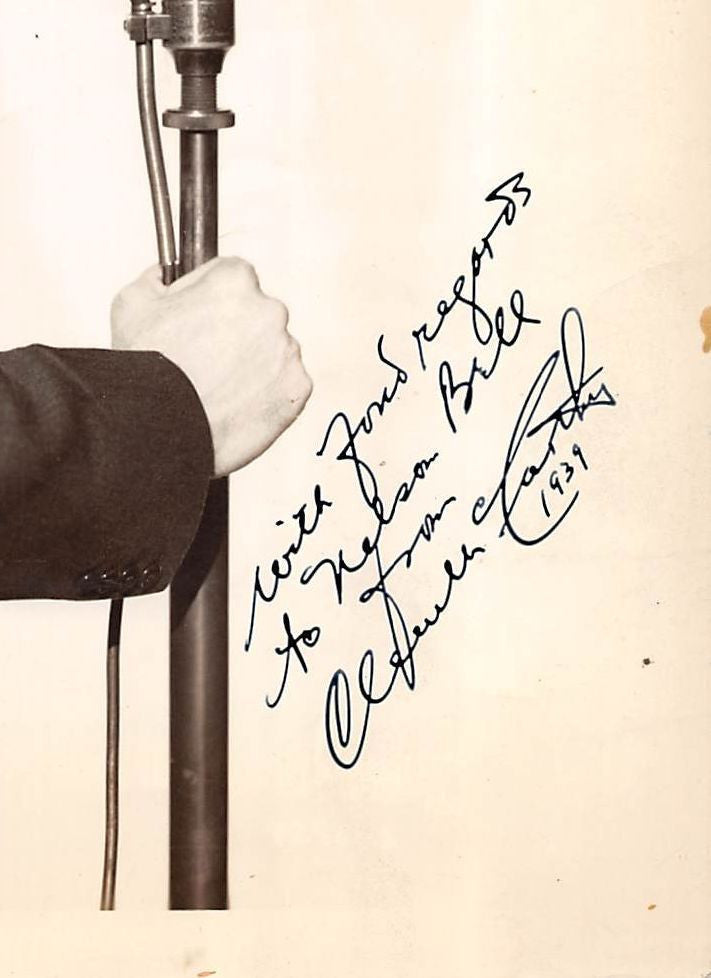 with fond regards
to Nelson Bell
from
Clem McCarthy
1939